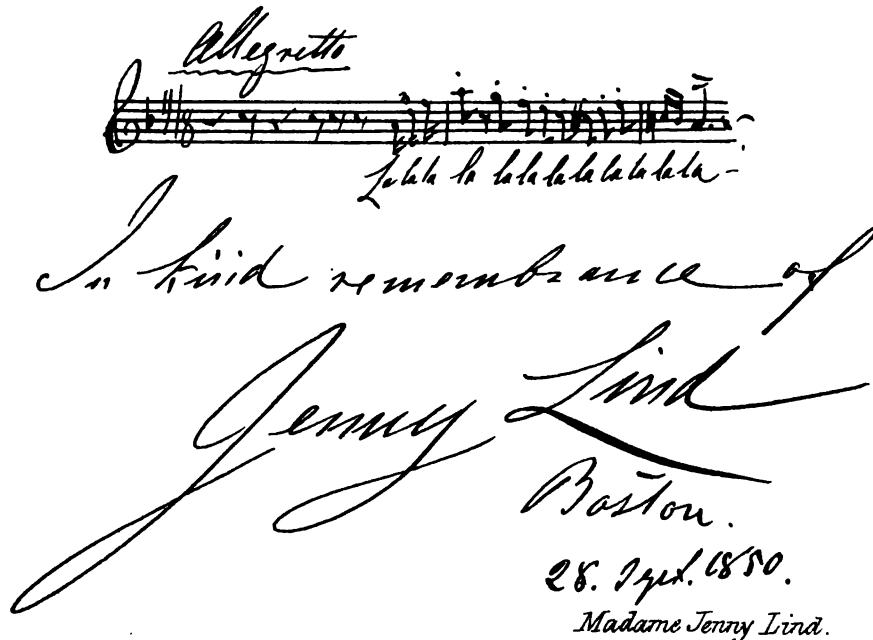 Allegretto
La la la la la la la la la la la la -
In kind remembrance of
Jenny Lind
Boston.
28. Sept. 1850.
Madame Jenny Lind.